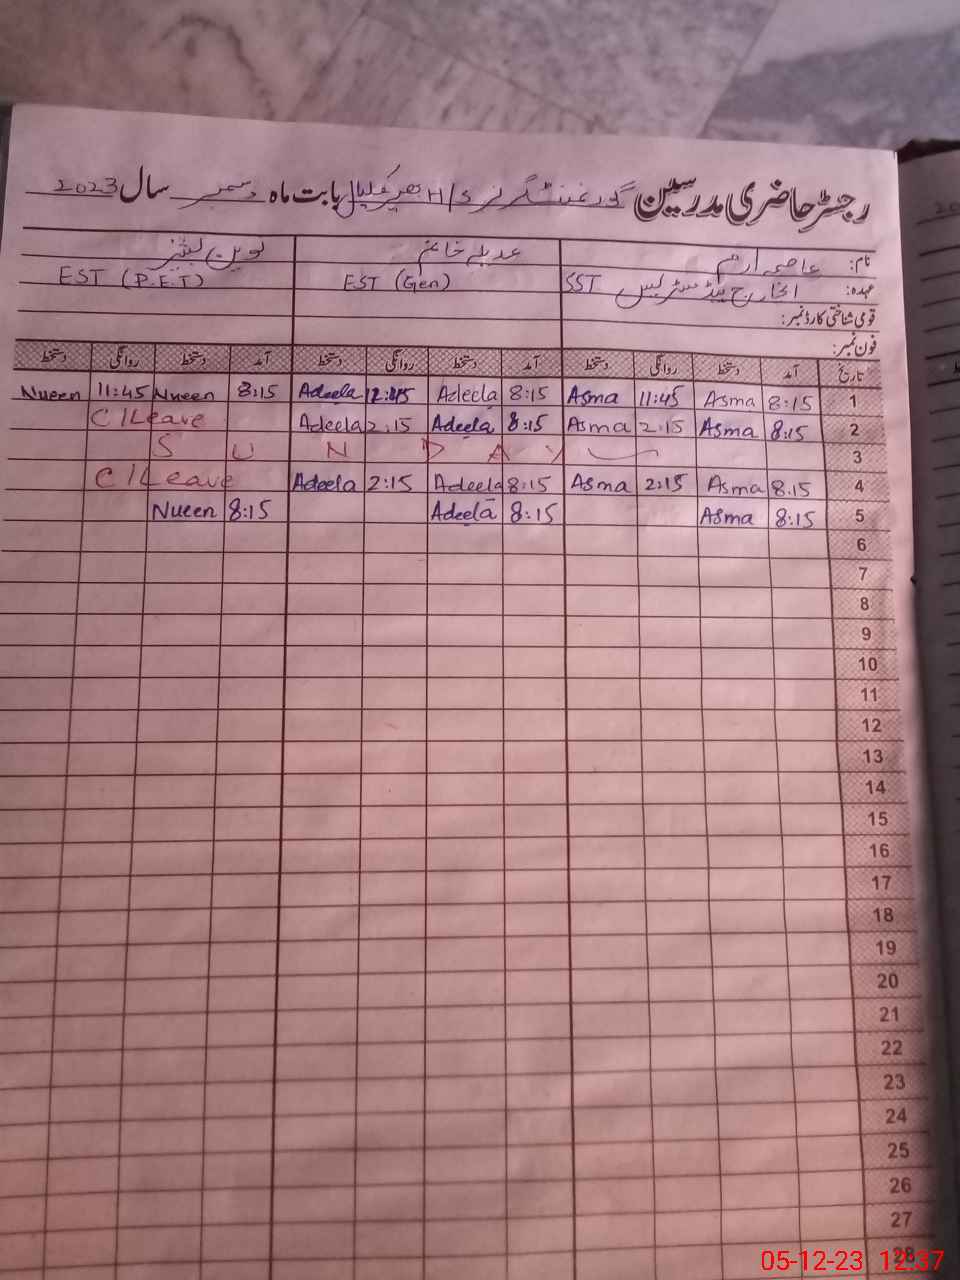 رجسٹر حاضری مدرسین گورنمنٹ گرلز H/S بابت ماہ دسمبر سال 2023
نام: عاصمہ ارم عدیلہ خانم نورین
عہدہ: انچارج ہیڈ مسٹریس SST EST (Gen) EST (P.E.T)
قومی شناختی کارڈ نمبر:
فون نمبر:
تاریخ آمد دستخط روانگی دستخط آمد دستخط روانگی دستخط آمد دستخط روانگی دستخط
1 8:15 Asma 11:45 Asma 8:15 Adeela 12:45 Adeela 8:15 Nueen 11:45 Nueen
2 8:15 Asma 2:15 Asma 8:15 Adeela 2:15 Adeela C/Leave
3 SUNDAY
4 8.15 Asma 2:15 Asma 8:15 Adeela 2:15 Adeela C/Leave
5 8:15 Asma 8:15 Adeela 8:15 Nueen
6
7
8
9
10
11
12
13
14
15
16
17
18
19
20
21
22
23
24
25
26
27
28
05-12-23 12:37